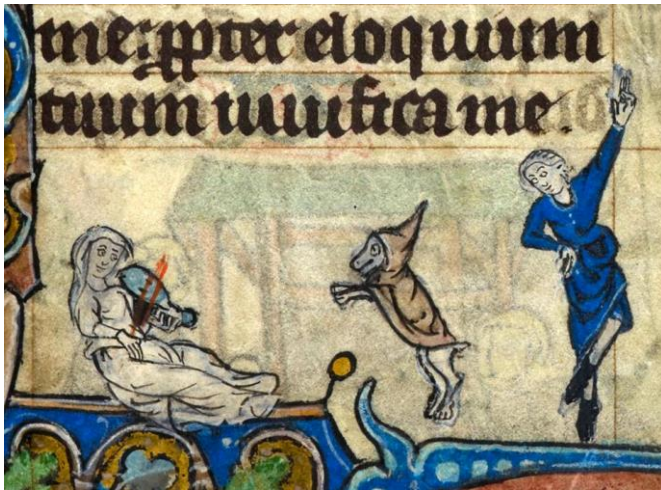 me: ꝓpter eloquium
tuum uiuifica me.